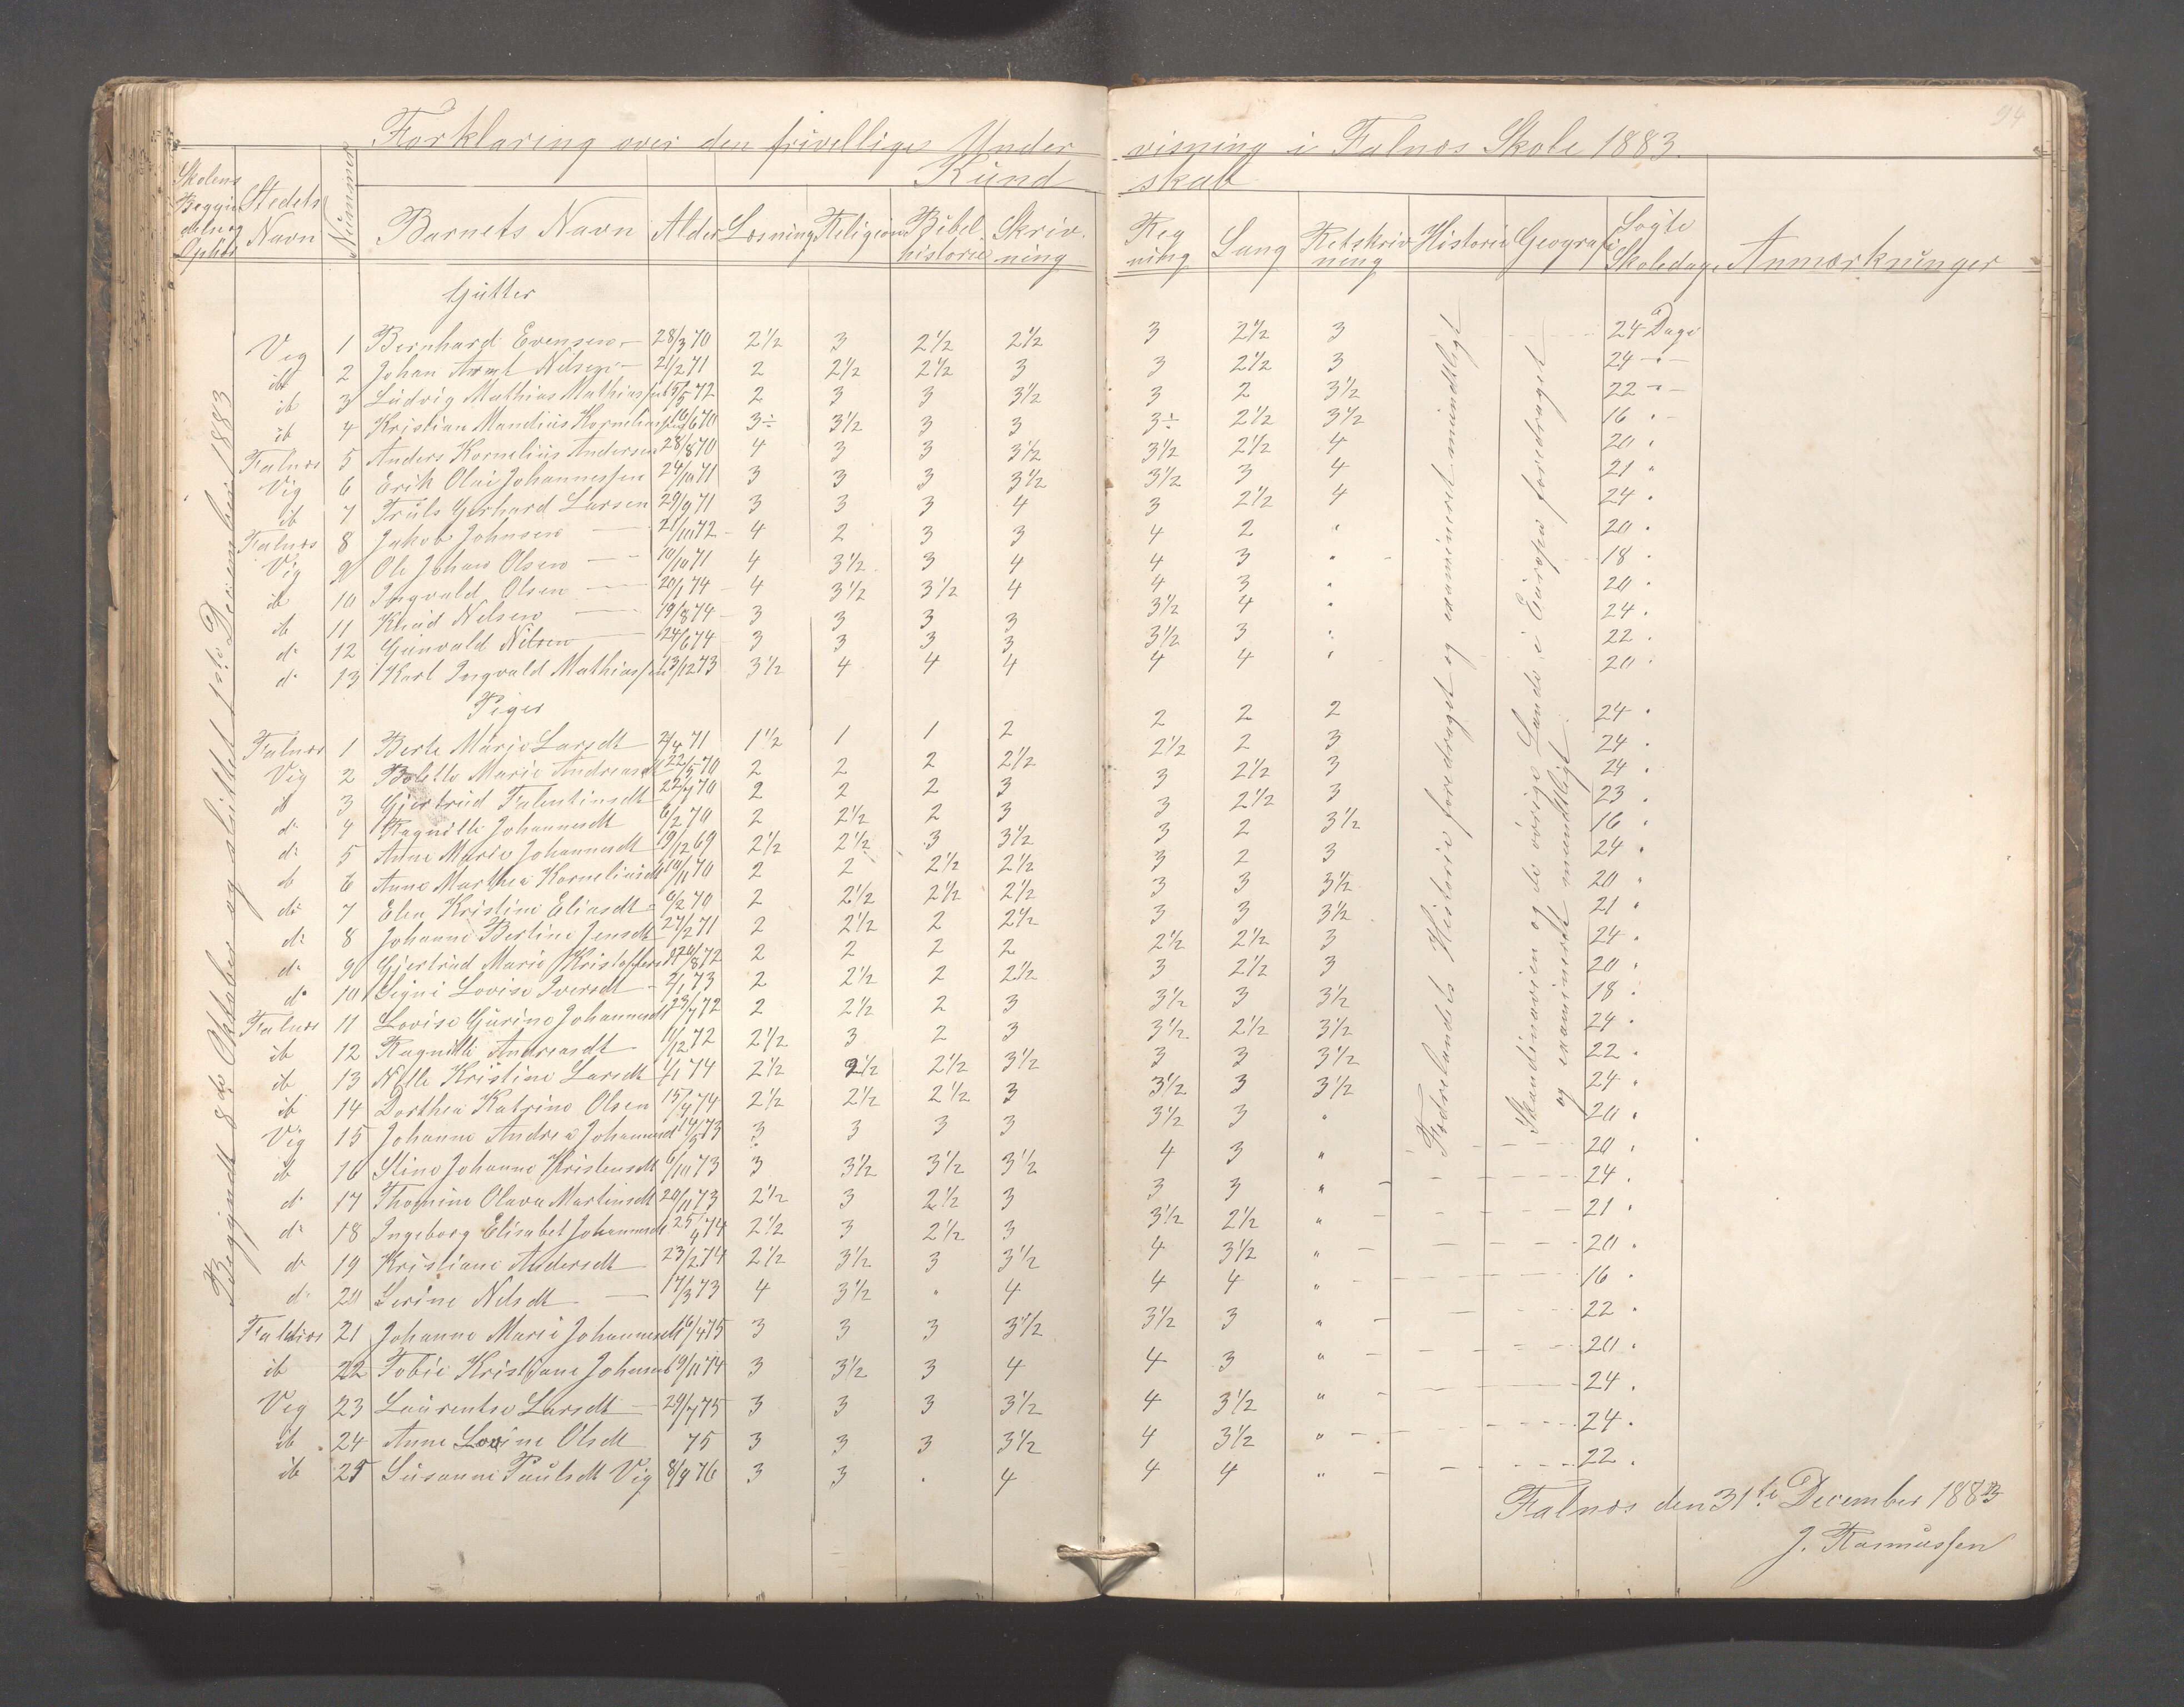 94
Forklaring over den frivillige Undervisning i Falnæs Skole 1883.
Kundskab
Skolens Begyndelse og Ophør | Stedets Navn | Nummer | Barnets Navn | Alder | Læsning | Religion | Bibelhistorie | Skrivning | Regning | Sang | Retskrivning | Historie | Geografi | Søgte Skoledage | Anmærkninger
Begyndt 8de Oktober og sluttet 1ste December 1883
Gutter
Vig 1 Bernhard Evensen 28/3 70 2½ 3 2½ 2½ 3 2½ 3 24 Dage
ib 2 Johan Arnt Nilsen 21/2 71 2 2½ 2½ 3 3 2½ 3 24 "
ib 3 Ludvig Mathias Mathiassen 15/5 72 2 3 3 3½ 3 2 3½ 22 "
ib 4 Kristian Mandius Korneliussen 16/6 70 3÷ 3½ 3 3 3÷ 2½ 3½ 16 "
Falnæs 5 Anders Kornelius Andersen 28/8 70 4 3 3 3½ 3½ 2½ 4 20 "
Vig 6 Erik Olai Johannessen 24/10 71 3 3 3 3½ 3½ 3 4 21 "
ib 7 Truls Gerhard Larsen 29/9 71 3 3 3 4 3 2½ 4 24 "
Falnæs 8 Jakob Johnsen 21/10 72 4 2 3 3 4 2 " 20 "
Vig 9 Ole Johan Olsen 10/10 71 4 3½ 3 4 4 3 " 18 "
ib 10 Ingvald Olsen 20/1 74 4 3½ 3½ 4 4 3 " 20 "
ib 11 Knud Nilsen 19/8 74 3 3 3 3 3½ 4 " 24 "
do 12 Gunvald Nilsen 24/6 74 3 3 3 3 3½ 3 " 22 "
do 13 Karl Ingvald Mathiassen 13/12 73 3½ 4 4 4 4 4 " 20 "
Piger
Falnæs 1 Berte Marie Larsdt 2/4 71 1½ 1 1 2 2 2 2 24 "
Vig 2 Bolette Marie Andreasdt 22/5 70 2 2 2 2½ 2½ 2 3 24 "
ib 3 Gjertrud Falentinsdt 22/7 70 2 2 2 3 3 2½ 3 24 "
do 4 Ragnille Johannesdt 6/2 70 2 2½ 2 3 3 2½ 3 23 "
do 5 Anne Marie Johannesdt 19/12 69 2½ 2½ 3 3½ 3 2 3½ 16 "
do 6 Anne Marthea Korneliusdt 10/11 70 2 2 2½ 2½ 3 2 3 24 "
do 7 Elen Kristine Eliasdt 6/2 70 2 2½ 2½ 2½ 3 3 3½ 20 "
do 8 Johanne Bertine Jensdt 27/2 71 2 2½ 2 2½ 3 3 3½ 21 "
do 9 Gjertrud Marie Kristoffersdt 20/8 72 2 2 2 2 2½ 2½ 3 24 "
do 10 Signi Lovise Iversdt 2/1 73 2 2½ 2 2½ 3 2½ 3 20 "
Falnæs 11 Lovise Gurine Johannesdt 23/7 72 2 2½ 2 3 3½ 3 3½ 18 "
ib 12 Ragnille Andreasdt 11/12 72 2½ 3 2 3 3½ 2½ 3½ 24 "
ib 13 Nille Kristine Larsdt 4/1 74 2½ 2½ 2½ 3½ 3 3 3½ 22 "
ib 14 Dorthea Katrine Olsen 15/4 74 2½ 2½ 2½ 3 3½ 3 3½ 24 "
Vig 15 Johanne Andrea Johannesdt 14/5 73 3 3 3 3 3½ 3 " 20 "
ib 16 Stine Johanne Kristensdt 6/10 73 3 3½ 3½ 3½ 4 3 " 20 "
do 17 Thomine Olava Martinsdt 20/11 73 2½ 3 2½ 3 3 3 " 24 "
do 18 Ingeborg Elisabet Johannesdt 25/4 74 2½ 3 2½ 3 3½ 2½ " 21 "
do 19 Kristiane Andersdt 23/2 74 2½ 3½ 3 3½ 4 3½ " 20 "
do 20 Serine Nelsdt 17/3 73 4 3½ " 4 4 4 " 16 "
Falnæs 21 Johanne Marie Johannesdt 16/4 75 3 3 3 3½ 3½ 3 " 22 "
ib 22 Tobie Kristjane Johansdt 19/11 74 3 3½ 3 4 4 3 " 20 "
Vig 23 Laurentse Larsdt 29/7 75 3 3 3 3½ 4 3½ " 24 "
ib 24 Anne Lovine Olsdt 75 3 3 3 3½ 4 3½ " 24 "
ib 25 Susanne Paulsdt Vig 8/9 76 3 3 . 4 4 4 " 22 "
Fædrelandets Historie foredraget og examineret mundtligt
Skandinavien og de øvrige Lande i Europa foredraget
og examinerte mundtligt
Falnæs den 31te December 1883
J. Rasmussen